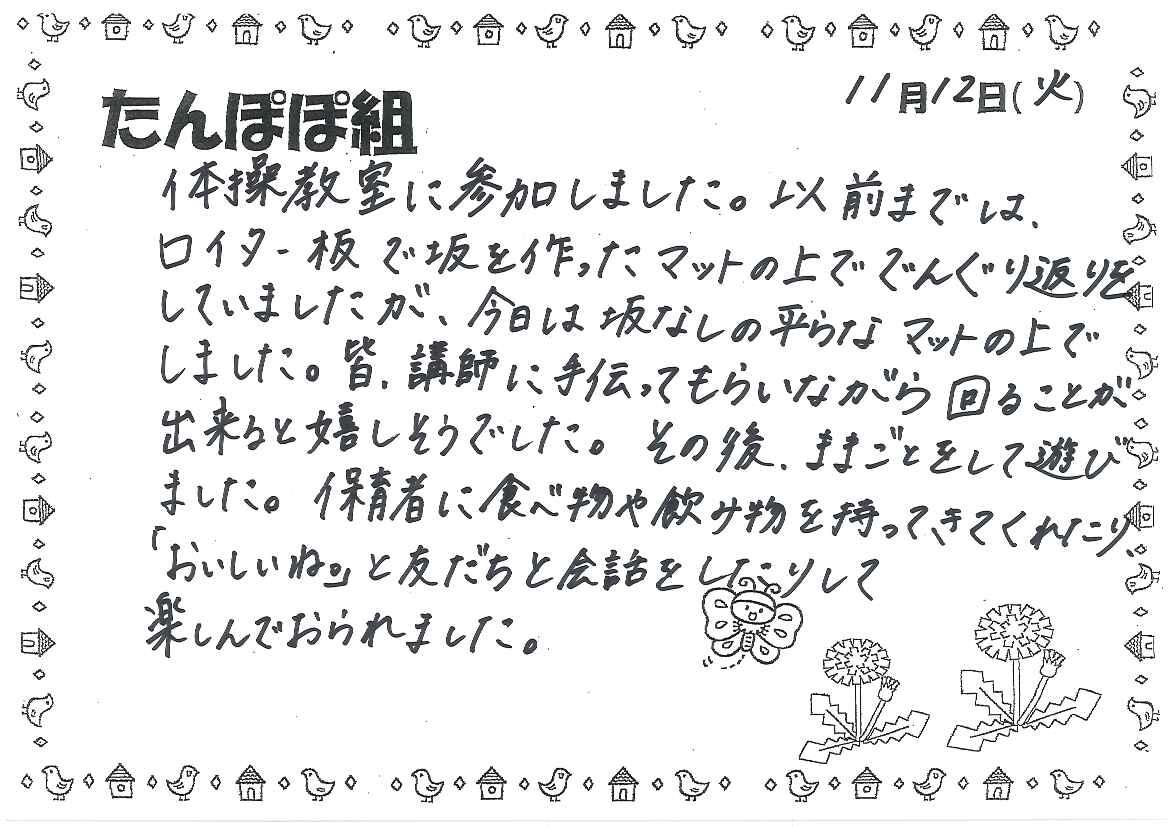 11月12日(火)
たんぽぽ組
体操教室に参加しました。以前までは、
ロイター板で坂を作ったマットの上ででんぐり返りを
していましたが、今日は坂なしの平らなマットの上で
しました。皆、講師に手伝ってもらいながら回ることが
出来ると嬉しそうでした。その後、ままごとをして遊び
ました。保育者に食べ物や飲み物を持ってきてくれたり、
「おいしいね。」と友だちと会話をしたりして
楽しんでおられました。